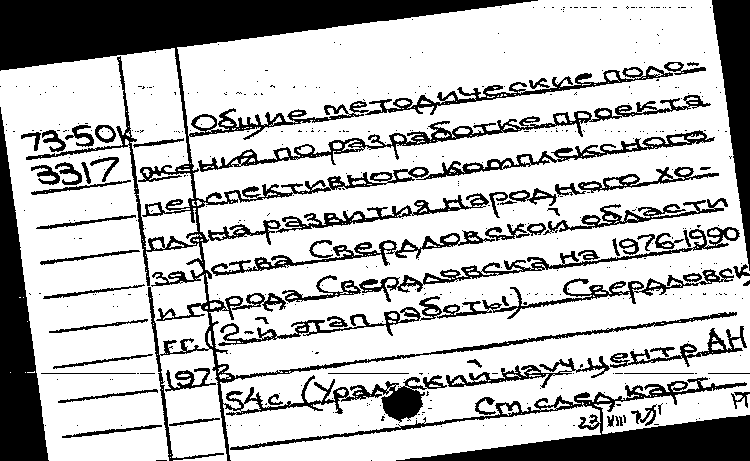 73-50к
3317
Общие методические поло-
жения по разработке проекта
перспективного комплексного
плана развития народного хо-
зяйства Свердловской области
и города Свердловска на 1976-1990
гг. (2-й этап работы). Свердловск
1973
54с. (Уральский науч. центр АН
См. след. карт.
23